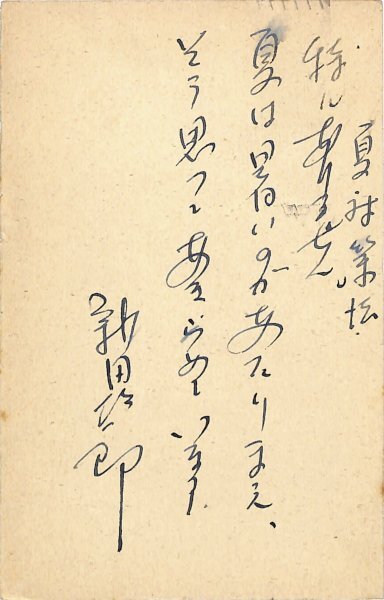 夏対策法
特にありません
夏は暑いのがあたりまえ、
そう思ってあきらめています
新田次郎